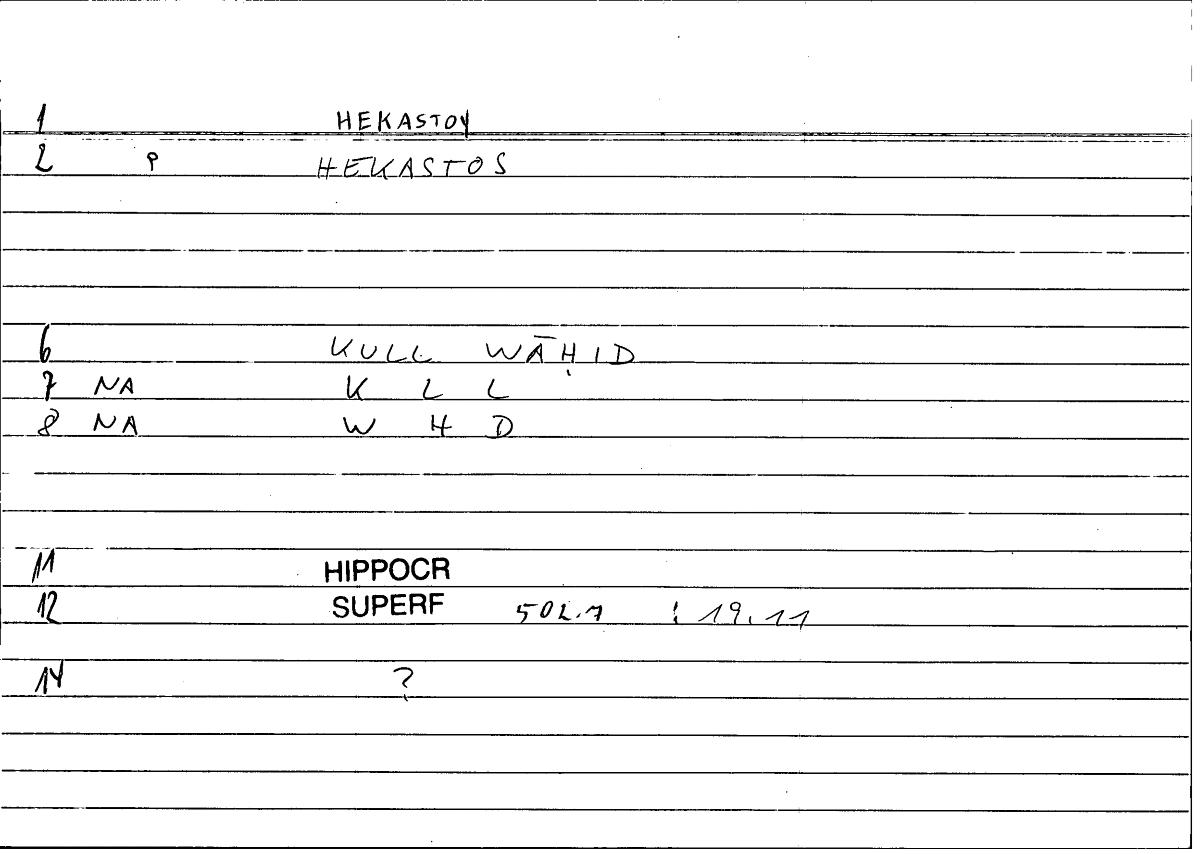 1 HEKASTOY
2 P HEKASTOS
6 KULL WĀḤID
7 NA K L L
8 NA W H D
11 HIPPOCR
12 SUPERF 502.7 : 19.11
14 ?